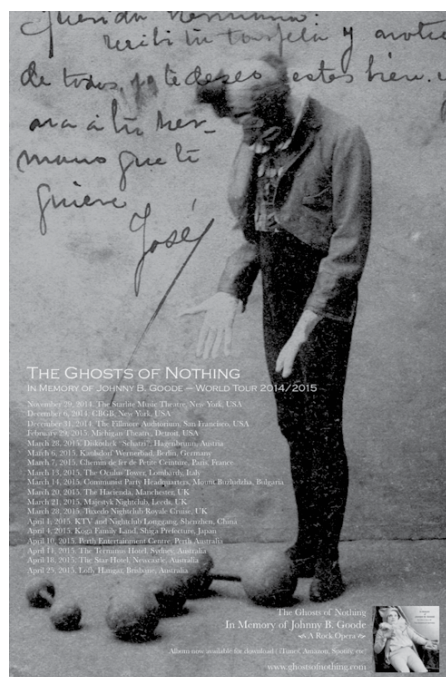 Querida Hermana:
recibí tu tarjela y
de todos, yo te deseo estes bien.
ma á tu her-
mano que te
quiere
José
THE GHOSTS OF NOTHING
IN MEMORY OF JOHNNY B. GOODE – WORLD TOUR 2014/2015
November 29, 2014, The Starlite Music Theatre, New York, USA
December 6, 2014, CBGB, New York, USA
December 31, 2014, The Fillmore Auditorium, San Francisco, USA
February 29, 2015, Michigan Theatre, Detroit, USA
March 28, 2015, Diskothek "Schatzi", Hagenbrunn, Austria
March 6, 2015, Kaulsdorf Wernerbad, Berlin, Germany
March 7, 2015, Chemin de fer de Petite Ceinture, Paris, France
March 13, 2015, The Oculus Tower, Lombardy, Italy
March 14, 2015, Communist Party Headquarters, Mount Buzludzha, Bulgaria
March 20, 2015, The Hacienda, Manchester, UK
March 21, 2015, Majestyk Nightclub, Leeds, UK
March 28, 2015, Tuxedo Nightclub Royale Cruise, UK
April 1, 2015, KTV and Nightclub Longgang, Shenzhen, China
April 4, 2015, Koga Family Land, Shiga Prefecture, Japan
April 10, 2015, Perth Entertainment Centre, Perth Australia
April 11, 2015, The Terminus Hotel, Sydney, Australia
April 18, 2015, The Star Hotel, Newcastle, Australia
April 25, 2015, Hangar, Brisbane, Australia
The Ghosts of Nothing
In Memory of Johnny B. Goode
A Rock Opera
Album now available for download (iTunes, Amazon, Spotify etc)
www.ghostsofnothing.com